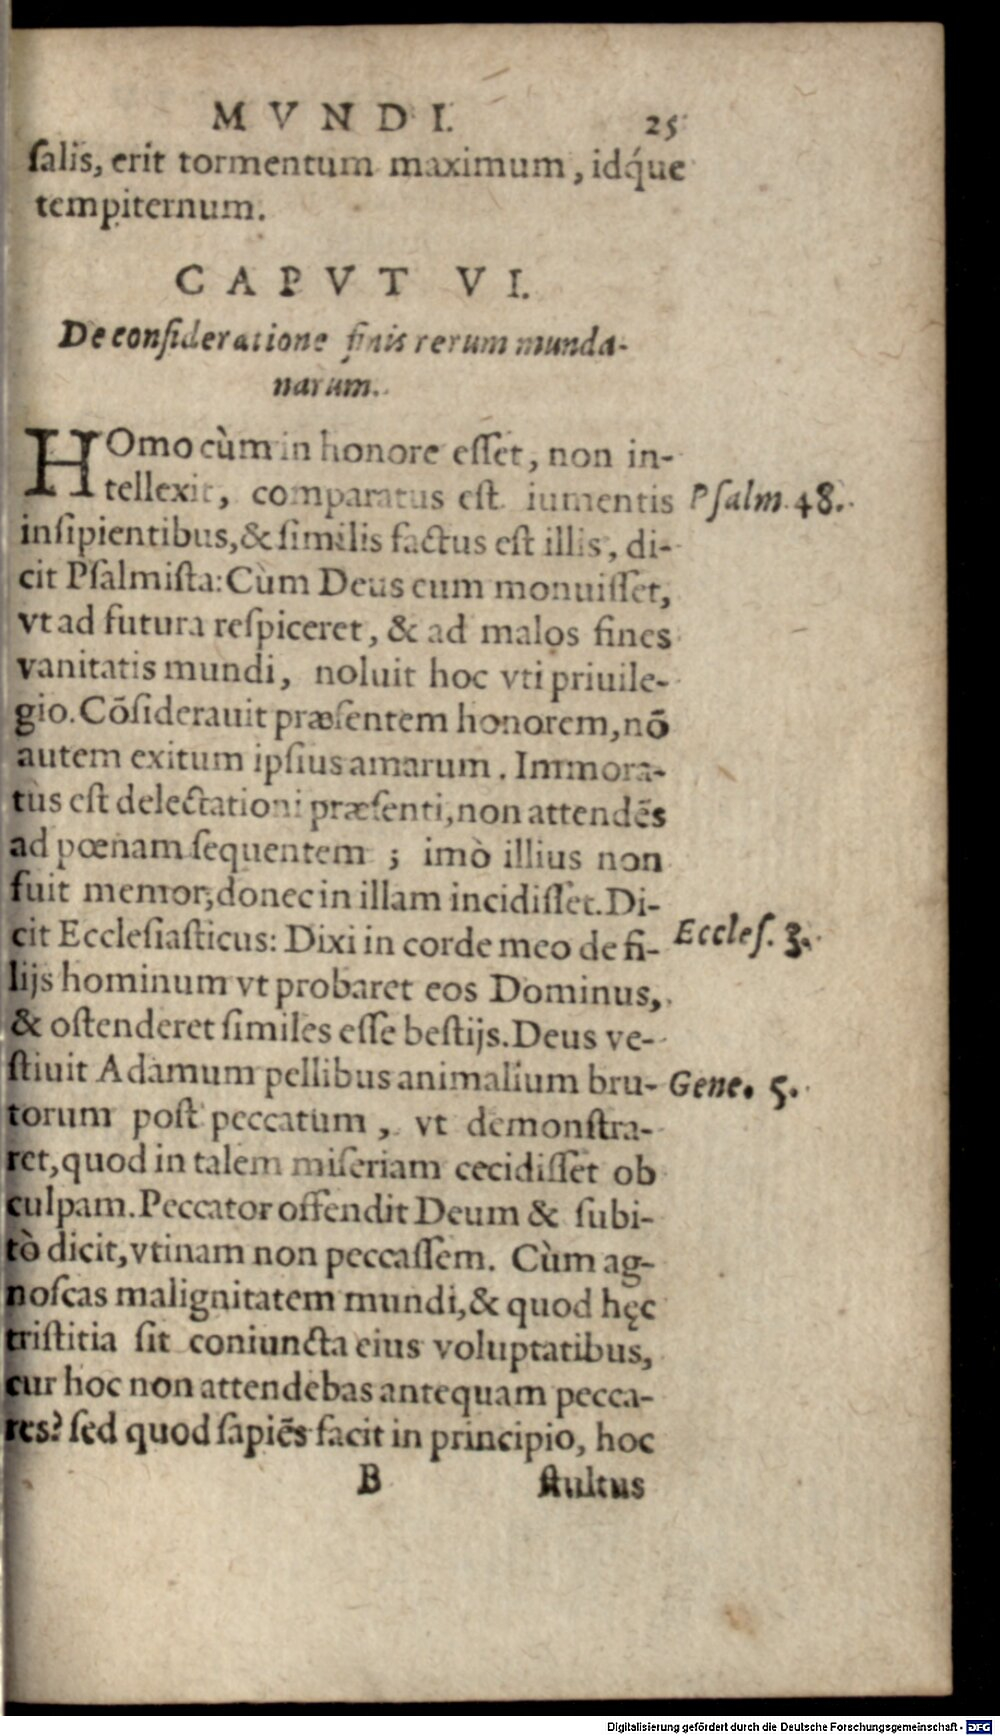 MVNDI. 25
ſalis, erit tormentum maximum, idq́ue
tempiternum.
CAPVT VI.
De conſideratione finis rerum munda-
narum.
HOmo cùm in honore eſſet, non in-
tellexit, comparatus eſt iumentis Pſalm. 48.
inſipientibus, & ſimilis factus eſt illis, di-
cit Pſalmiſta: Cùm Deus eum monuiſſet,
vt ad futura reſpiceret, & ad malos fines
vanitatis mundi, noluit hoc vti priuile-
gio. Cōſiderauit præſentem honorem, nō
autem exitum ipſius amarum. Immora-
tus eſt delectationi præſenti, non attendēs
ad pœnam ſequentem ; imò illius non
fuit memor, donec in illam incidiſſet. Di-
cit Eccleſiaſticus: Dixi in corde meo de fi- Eccleſ. 3.
lijs hominum vt probaret eos Dominus,
& oſtenderet ſimiles eſſe beſtijs. Deus ve-
ſtiuit Adamum pellibus animalium bru- Gene. 5.
torum poſt peccatum, vt demonſtra-
ret, quod in talem miſeriam cecidiſſet ob
culpam. Peccator offendit Deum & ſubi-
tò dicit, vtinam non peccaſſem. Cùm ag-
noſcas malignitatem mundi, & quod hęc
triſtitia ſit coniuncta eius voluptatibus,
cur hoc non attendebas antequam pecca-
res? ſed quod ſapiēs facit in principio, hoc
B ſtultus
Digitalisierung gefördert durch die Deutsche Forschungsgemeinschaft - DFG